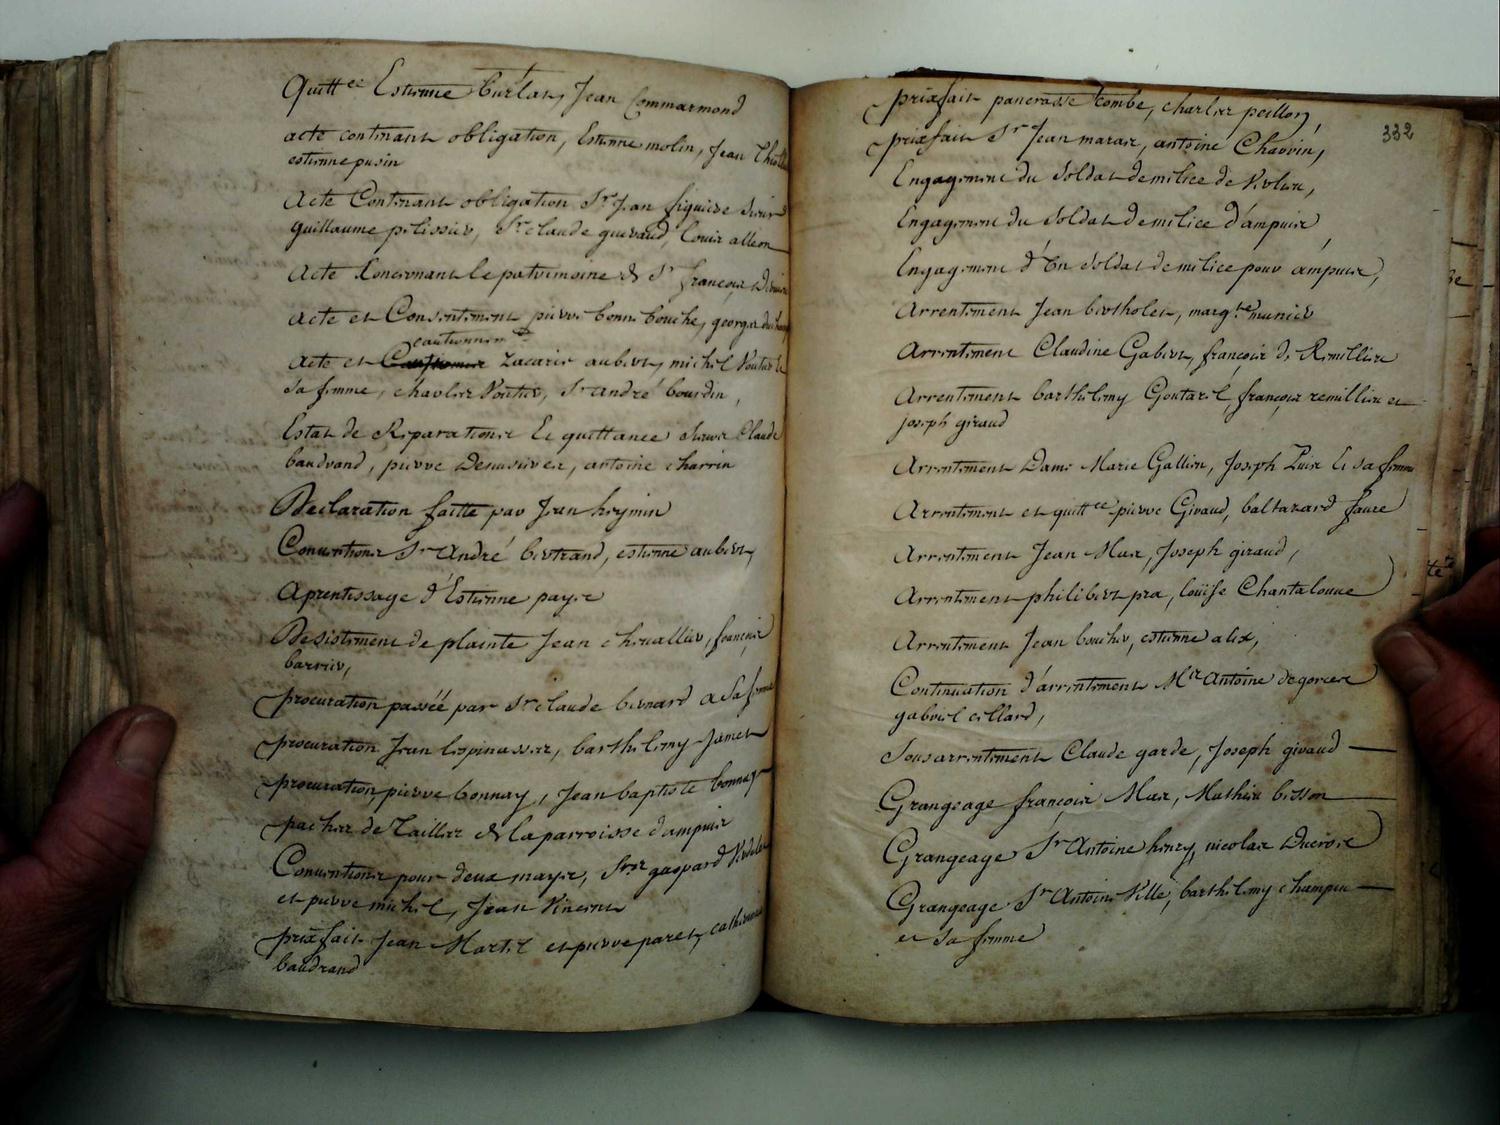 Quitt.ce Estienne burlat, Jean Commarmond
acte contenant obligation, Estienne molin, Jean
estienne pusin
Acte Contenant obligation Sr Jean figuiere
guillaume pelissier, Sr claude gueraud, Louis alleon
Acte Concernant le patrimoine de Sr françois
Acte et Consentement pierre bonnebouche, george
cautionnemt
Acte et Zacarie aubert, michel
sa femme, charles, Sr andré bourdin,
Estat de Reparations et quittance Claude
baudrand, pierre, antoine charrin
Declaration faitte par Jean heymin
Conventions Sr André bertrand, estienne aubert,
Aprentissage d'Estienne payre
Desistement de plainte Jean chevallier, françois
barrier,
procuration passéé par Sr claude bernard a sa femme
procuration Jean lespinasse, barthelemy Jamet
procuration pierre bonnay, Jean baptiste bonnay
paches de Tailles de la parroisse d'ampuis
Conventions pour deux mayse, Srs gaspard
et pierre michel, Jean Vincent
prixfait Jean Martel et pierre paret, catherine
baudrand
332
prixfait pancrasse Combe, charles peillon,
prixfait Sr Jean maras, antoine Chavvin,
Engagement du Soldat de milice de
Engagement du Soldat de milice d'ampuis,
Engagement d'Un Soldat de milice pour ampuis,
Arrentement Jean bertholet, marg.te munier
Arrentement Claudine Gabert, françois de Remilliere
Arrentement barthelemy Goutarel, françois remillier et
joseph giraud
Arrentement Dame Marie Gallien, Joseph et sa femme
Arrentement et quitt.ce pierre Giraud, baltazard faure
Arrentement Jean Mas, Joseph giraud,
Arrentement philibert pra, loüise Chantalouve
Arrentement Jean boucher, estienne alix,
Continuation d'arrentement Mre Antoine degorcere
gabriel cellard,
Sousarrentement Claude garde, Joseph giraud
Grangeage françois Mas, Mathieu besson
Grangeage Sr Antoine henry, nicolas Ducros
Grangeage Sr Antoine Ville, barthelemy champin
et sa femme